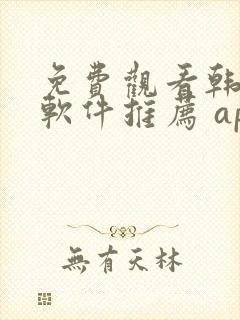 免費觀看韓
軟件推薦 ap
無有天林